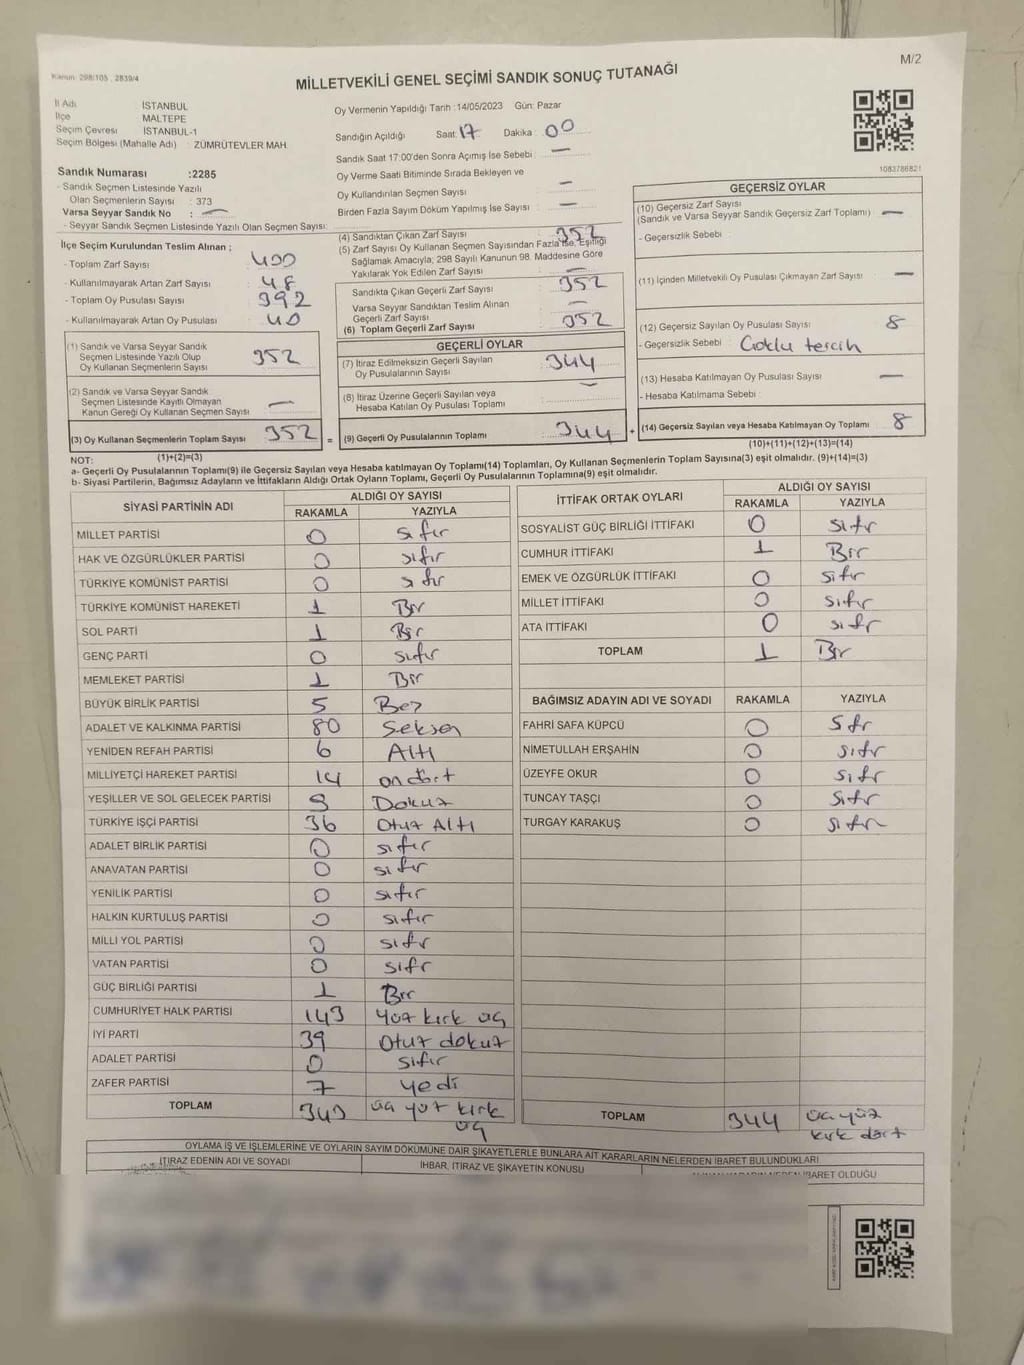 Kanun: 298/105 , 2839/4
M/2
MİLLETVEKİLİ GENEL SEÇİMİ SANDIK SONUÇ TUTANAĞI
İl Adı İSTANBUL
İlçe MALTEPE
Seçim Çevresi İSTANBUL-1
Seçim Bölgesi (Mahalle Adı) : ZÜMRÜTEVLER MAH.
Sandık Numarası :2285
- Sandık Seçmen Listesinde Yazılı
Olan Seçmenlerin Sayısı : 373
Varsa Seyyar Sandık No : —
- Seyyar Sandık Seçmen Listesinde Yazılı Olan Seçmen Sayısı:
İlçe Seçim Kurulundan Teslim Alınan ;
- Toplam Zarf Sayısı 400
- Kullanılmayarak Artan Zarf Sayısı 48
- Toplam Oy Pusulası Sayısı 392
- Kullanılmayarak Artan Oy Pusulası 40
(1) Sandık ve Varsa Seyyar Sandık
Seçmen Listesinde Yazılı Olup
Oy Kullanan Seçmenlerin Sayısı 352
(2) Sandık ve Varsa Seyyar Sandık
Seçmen Listesinde Kayıtlı Olmayan
Kanun Gereği Oy Kullanan Seçmen Sayısı —
(3) Oy Kullanan Seçmenlerin Toplam Sayısı 352
(1)+(2)=(3)
Oy Vermenin Yapıldığı Tarih :14/05/2023 Gün: Pazar
Sandığın Açıldığı Saat: 17 Dakika : 00
Sandık Saat 17:00'den Sonra Açımış İse Sebebi : —
Oy Verme Saati Bitiminde Sırada Bekleyen ve
Oy Kullandırılan Seçmen Sayısı : —
Birden Fazla Sayım Döküm Yapılmış İse Sayısı : —
(4) Sandıktan Çıkan Zarf Sayısı : 352
(5) Zarf Sayısı Oy Kullanan Seçmen Sayısından Fazla İse, Eşitliği
Sağlamak Amacıyla; 298 Sayılı Kanunun 98. Maddesine Göre
Yakılarak Yok Edilen Zarf Sayısı : —
Sandıkta Çıkan Geçerli Zarf Sayısı : 352
Varsa Seyyar Sandıktan Teslim Alınan
Geçerli Zarf Sayısı : —
(6) Toplam Geçerli Zarf Sayısı : 352
GEÇERLİ OYLAR
(7) İtiraz Edilmeksizin Geçerli Sayılan
Oy Pusulalarının Sayısı : 344
(8) İtiraz Üzerine Geçerli Sayılan veya
Hesaba Katılan Oy Pusulası Toplamı : —
= (9) Geçerli Oy Pusulalarının Toplamı : 344 +
1083786821
GEÇERSİZ OYLAR
(10) Geçersiz Zarf Sayısı
(Sandık ve Varsa Seyyar Sandık Geçersiz Zarf Toplamı) —
- Geçersizlik Sebebi :
(11) İçinden Milletvekili Oy Pusulası Çıkmayan Zarf Sayısı : —
(12) Geçersiz Sayılan Oy Pusulası Sayısı : 8
- Geçersizlik Sebebi : Çoklu tercih
(13) Hesaba Katılmayan Oy Pusulası Sayısı : —
- Hesaba Katılmama Sebebi :
(14) Geçersiz Sayılan veya Hesaba Katılmayan Oy Toplamı : 8
(10)+(11)+(12)+(13)=(14)
NOT:
a- Geçerli Oy Pusulalarının Toplamı(9) ile Geçersiz Sayılan veya Hesaba katılmayan Oy Toplamı(14) Toplamları, Oy Kullanan Seçmenlerin Toplam Sayısına(3) eşit olmalıdır. (9)+(14)=(3)
b- Siyasi Partilerin, Bağımsız Adayların ve İttifakların Aldığı Ortak Oyların Toplamı, Geçerli Oy Pusulalarının Toplamına(9) eşit olmalıdır.
SİYASİ PARTİNİN ADI ALDIĞI OY SAYISI
RAKAMLA YAZIYLA
MİLLET PARTİSİ 0 sıfır
HAK VE ÖZGÜRLÜKLER PARTİSİ 0 sıfır
TÜRKİYE KOMÜNİST PARTİSİ 0 sıfır
TÜRKİYE KOMÜNİST HAREKETİ 1 Bir
SOL PARTİ 1 Bir
GENÇ PARTİ 0 sıfır
MEMLEKET PARTİSİ 1 Bir
BÜYÜK BİRLİK PARTİSİ 5 Beş
ADALET VE KALKINMA PARTİSİ 80 Seksen
YENİDEN REFAH PARTİSİ 6 Altı
MİLLİYETÇİ HAREKET PARTİSİ 14 on dört
YEŞİLLER VE SOL GELECEK PARTİSİ 9 Dokuz
TÜRKİYE İŞÇİ PARTİSİ 36 Otuz Altı
ADALET BİRLİK PARTİSİ 0 sıfır
ANAVATAN PARTİSİ 0 sıfır
YENİLİK PARTİSİ 0 sıfır
HALKIN KURTULUŞ PARTİSİ 0 sıfır
MİLLİ YOL PARTİSİ 0 sıfır
VATAN PARTİSİ 0 sıfır
GÜÇ BİRLİĞİ PARTİSİ 1 Bir
CUMHURİYET HALK PARTİSİ 143 Yüz kırk üç
İYİ PARTİ 39 Otuz dokuz
ADALET PARTİSİ 0 sıfır
ZAFER PARTİSİ 7 yedi
TOPLAM 343 üç yüz kırk
üç
İTTİFAK ORTAK OYLARI ALDIĞI OY SAYISI
RAKAMLA YAZIYLA
SOSYALİST GÜÇ BİRLİĞİ İTTİFAKI 0 sıfır
CUMHUR İTTİFAKI 1 Bir
EMEK VE ÖZGÜRLÜK İTTİFAKI 0 sıfır
MİLLET İTTİFAKI 0 sıfır
ATA İTTİFAKI 0 sıfır
TOPLAM 1 Bir
BAĞIMSIZ ADAYIN ADI VE SOYADI RAKAMLA YAZIYLA
FAHRİ SAFA KÜPCÜ 0 Sıfır
NİMETULLAH ERŞAHİN 0 sıfır
ÜZEYFE OKUR 0 sıfır
TUNCAY TAŞÇI 0 sıfır
TURGAY KARAKUŞ 0 sıfır
TOPLAM 344 üç yüz
kırk dört
OYLAMA İŞ VE İŞLEMLERİNE VE OYLARIN SAYIM DÖKÜMÜNE DAİR ŞİKAYETLERLE BUNLARA AİT KARARLARIN NELERDEN İBARET BULUNDUKLARI
İTİRAZ EDENİN ADI VE SOYADI İHBAR, İTİRAZ VE ŞİKAYETİN KONUSU İBARET OLDUĞU